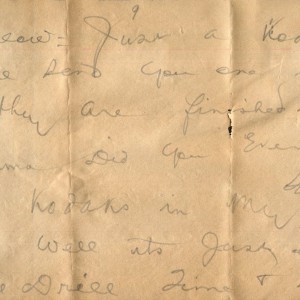 9
Just a Kod
send you one
they are finished
ma Did you Eve
Kodaks in My
Well its Just a
e Drill Time &